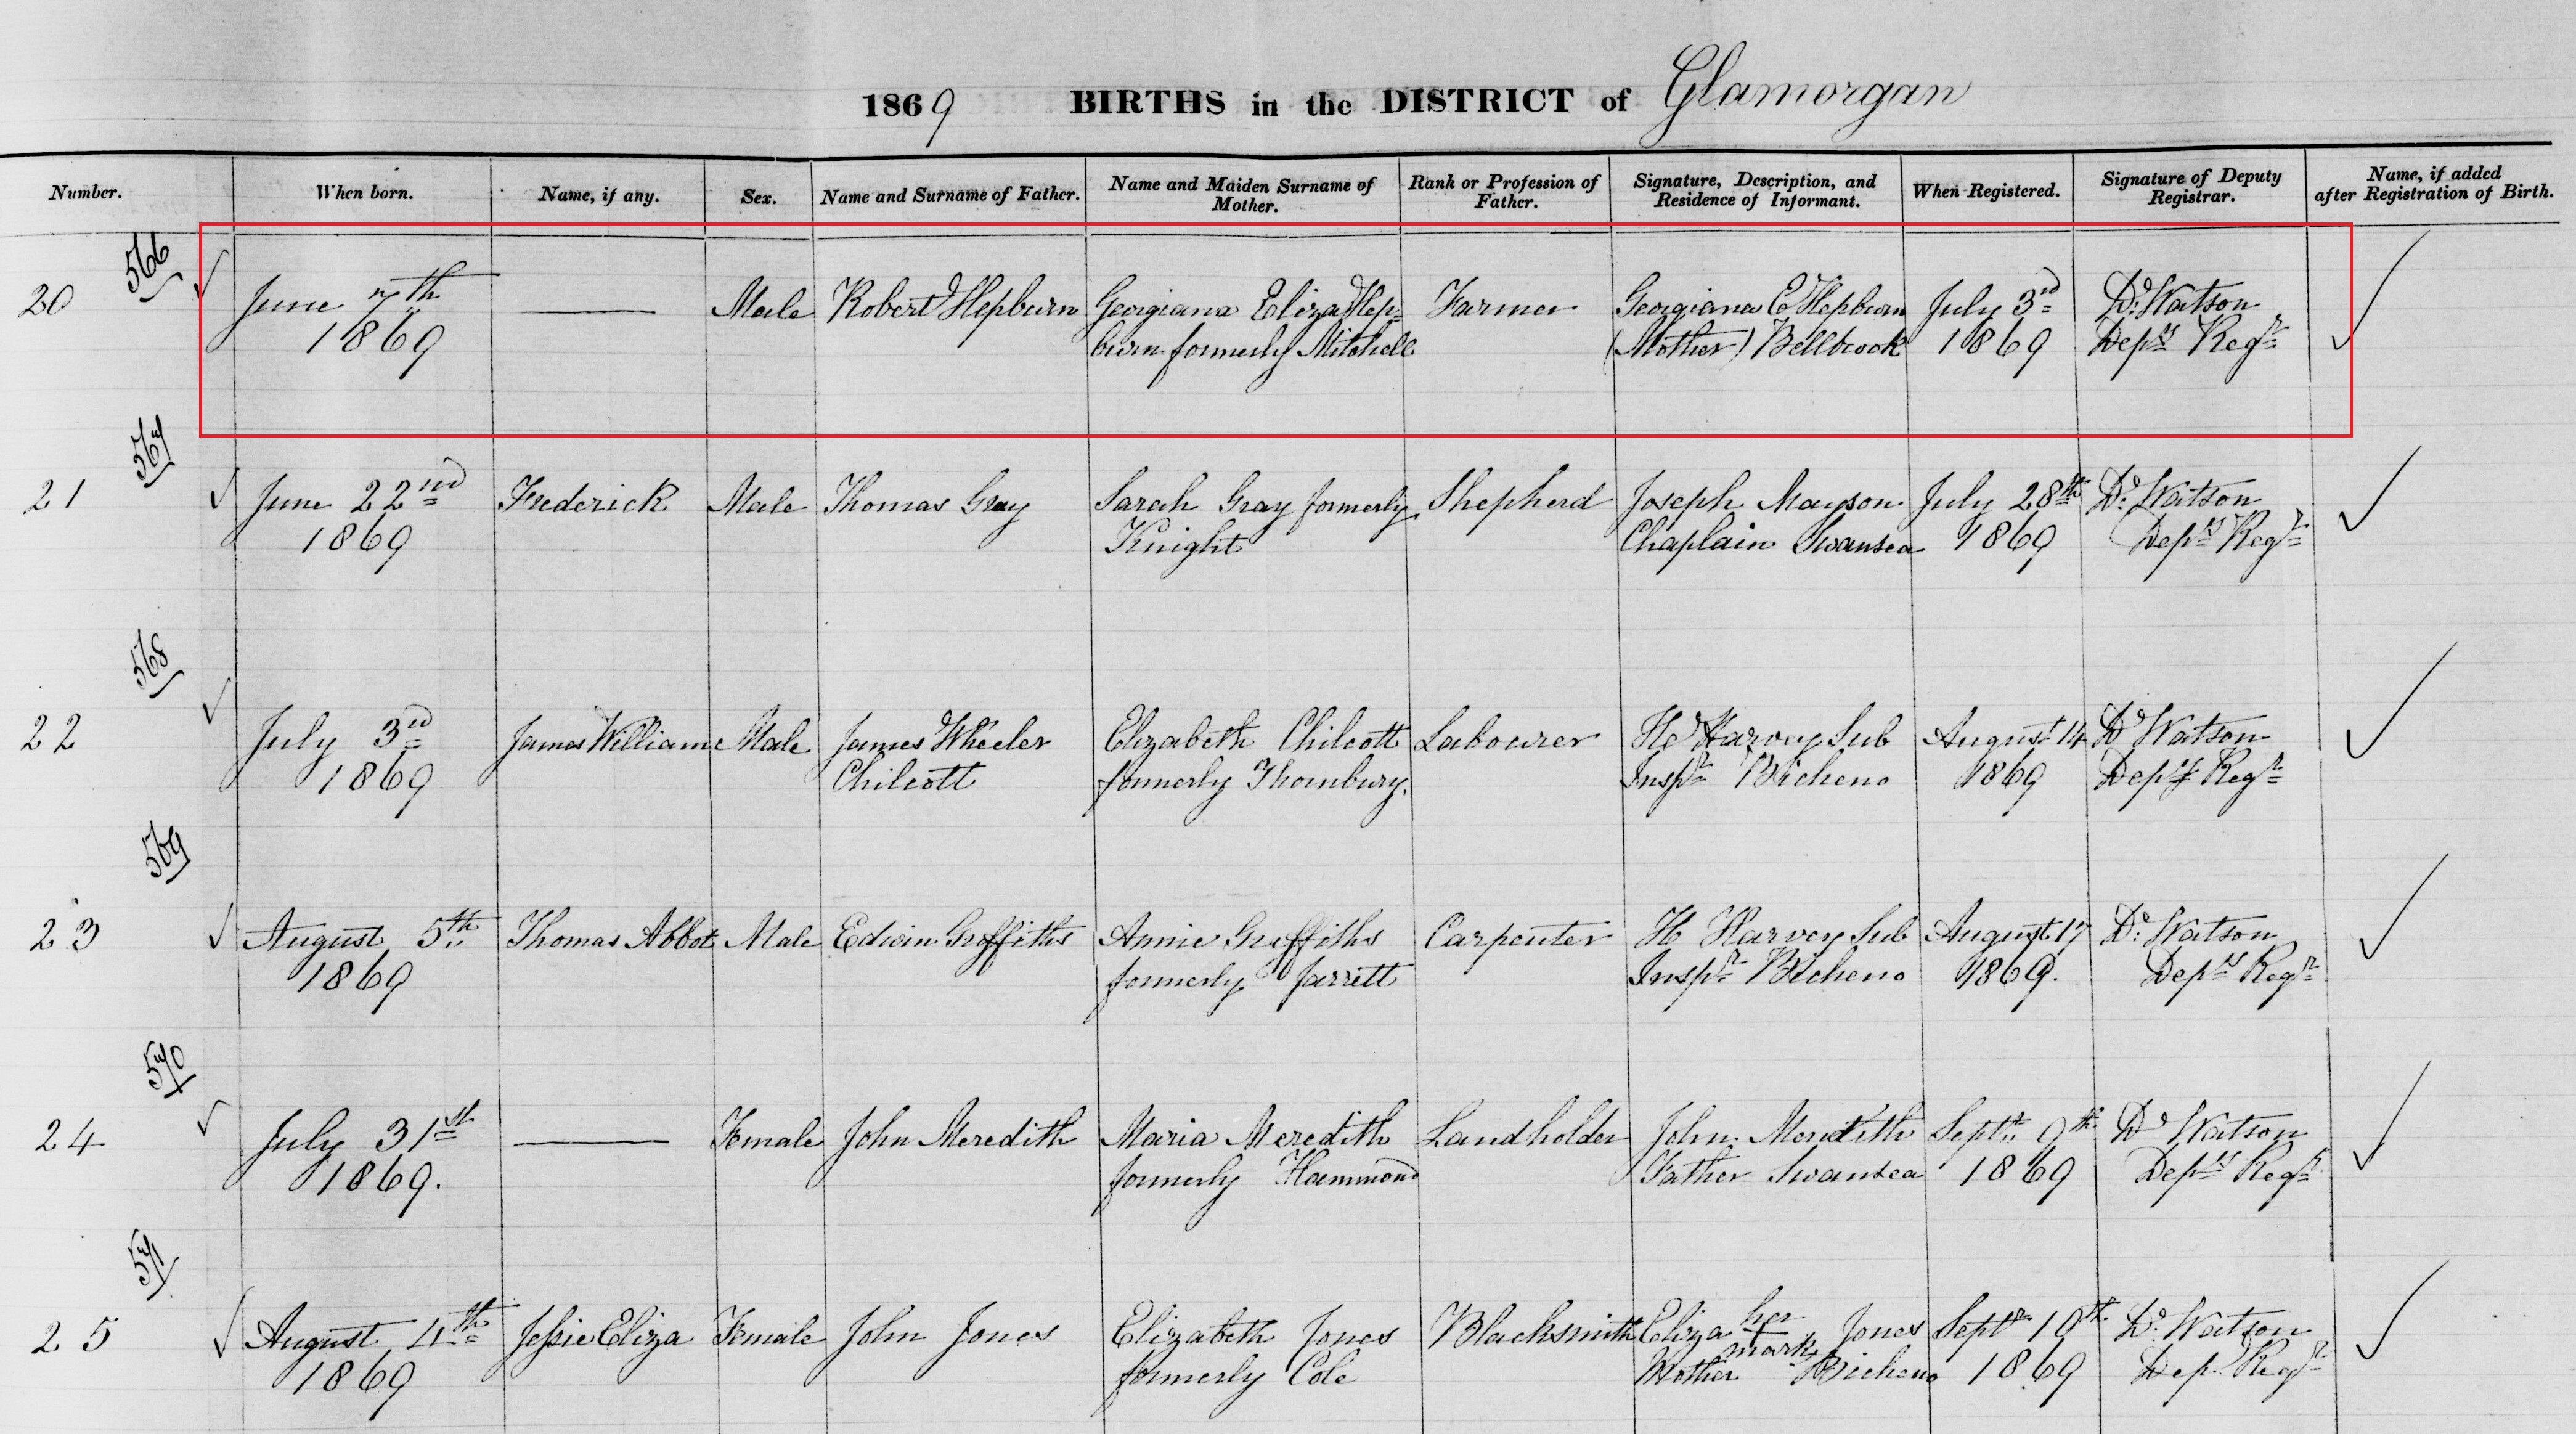 1869 BIRTHS in the DISTRICT of Glamorgan
Number. When born. Name, if any. Sex. Name and Surname of Father. Name and Maiden Surname of Mother. Rank or Profession of Father. Signature, Description, and Residence of Informant. When Registered. Signature of Deputy Registrar. Name, if added after Registration of Birth.
566
20 June 7th Male Robert Hepburn Georgiana Eliza Hep= Farmer Georgiana E Hepburn July 3rd Dr. Watson
1869 burn formerly Mitchell (Mother) Bellbrook 1869 Depy Regr
567
21 June 22nd Frederick Male Thomas Gray Sarah Gray formerly Shepherd Joseph Mayson July 28th Dr. Watson
1869 Knight Chaplain Swansea 1869 Depy Regr
568
22 July 3rd James William Male James Wheeler Elizabeth Chilcott Labourer H Harvey Sub August 14 Dr Watson
1869 Chilcott formerly Thornbury. Inspr Bicheno 1869 Depy Regr
569
23 August 5th Thomas Abbot Male Edwin Griffiths Annie Griffiths Carpenter H Harvey Sub August 17 Dr. Watson
1869 formerly Jarrett Inspr Bicheno 1869. Depy Regr
570
24 July 31st Female John Meredith Maria Meredith Landholder John Meredith Septr 9th Dr Watson
1869. formerly Hammond Father Swansea 1869 Depy Regr
571
25 August 4th Jessie Eliza Female John Jones Elizabeth Jones Blacksmith Eliza her + mark Jones Septr 10th Dr. Watson
1869 formerly Cole Mother Bicheno 1869 Dep. Regr